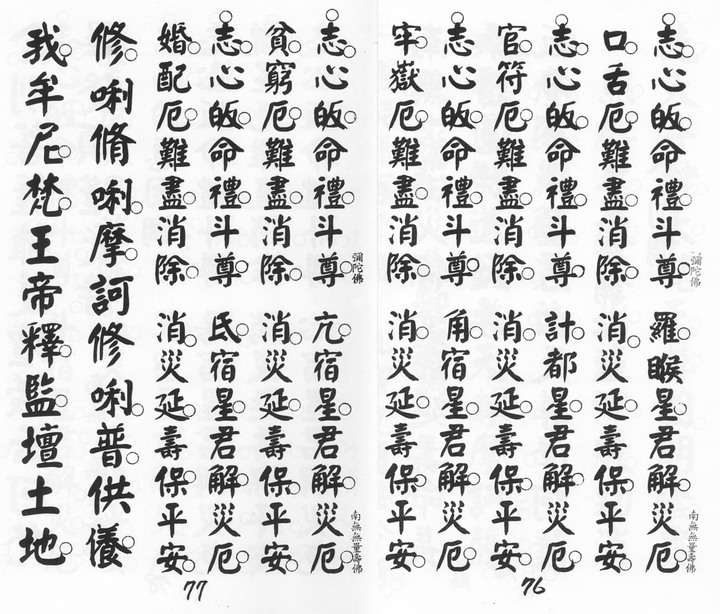 志心皈命禮斗尊 羅睺星君解災厄
彌陀佛 南無無量壽佛
口舌厄難盡消除 消災延壽保平安
志心皈命禮斗尊 計都星君解災厄
官符厄難盡消除 消災延壽保平安
志心皈命禮斗尊 角宿星君解災厄
牢嶽厄難盡消除 消災延壽保平安
76
志心皈命禮斗尊 亢宿星君解災厄
彌陀佛 南無無量壽佛
貧窮厄難盡消除 消災延壽保平安
志心皈命禮斗尊 氐宿星君解災厄
婚配厄難盡消除 消災延壽保平安
修唎脩唎摩訶修唎普供養
我牟尼梵王帝釋監壇土地
77